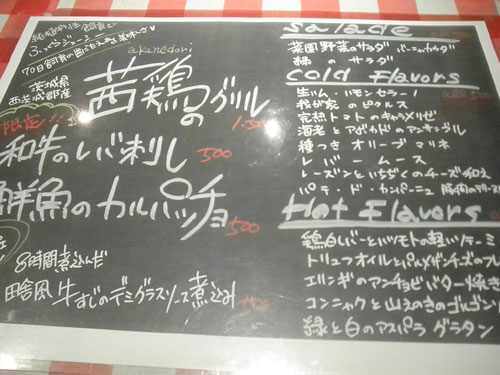 ふっくらジューシー
70日飼育の歯ごたえある美味しさ♥
akanedori
茨城県
西茨城郡産
茜鶏のグリル
限定!!
和牛のレバ刺し 500
鮮魚のカルパッチョ 500
8時間煮込んだ
田舎風 牛すじのデミグラスソース煮込み
Salade
菜園野菜のサラダ バーニャカウダ
緑のサラダ
Cold Flavors
生ハム・
我が家のピクルス
完熟トマトのキャラメリゼ
海老とアボカドの
種つきオリーブマリネ
レバームース
レーズンといちぢくのチーズ和え
パテ・ド・カンパーニュ
Hot Flavors
鶏白レバーと
トリュフオイルとパルメザンチーズの
エリンギのアンチョビバター焼き
コンニャクと山えのきのゴルゴン
緑と白のアスパラ グラタン